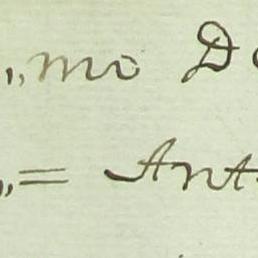 „mo Do
„= Ant